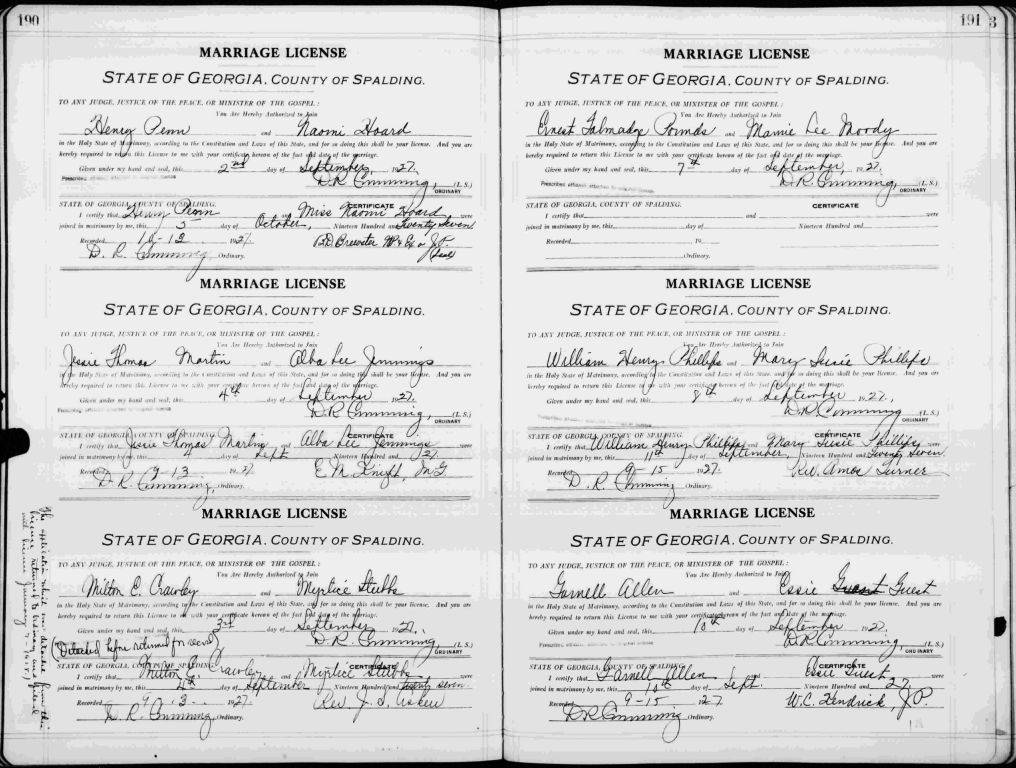 190
MARRIAGE LICENSE
STATE OF GEORGIA, COUNTY OF SPALDING.
TO ANY JUDGE, JUSTICE OF THE PEACE, OR MINISTER OF THE GOSPEL:
You Are Hereby Authorized to Join
Henry Penn and Naomi Hoard
in the Holy State of Matrimony, according to the Constitution and Laws of this State, and for so doing this shall be your license. And you are
hereby required to return this License to me with your certificate hereon of the fact and date of the marriage.
Given under my hand and seal, this 2nd day of September, 1927.
D.R. Cumming, (L. S.)
ORDINARY
STATE OF GEORGIA, COUNTY OF SPALDING. CERTIFICATE
I certify that Henry Penn and Miss Naomi Hoard were
joined in matrimony by me, this 5 day of October, Nineteen Hundred and Twenty Seven
Recorded 10-12 1927. B.D. Brewster J.P.
D. R. Cumming Ordinary. (Seal)
MARRIAGE LICENSE
STATE OF GEORGIA, COUNTY OF SPALDING.
TO ANY JUDGE, JUSTICE OF THE PEACE, OR MINISTER OF THE GOSPEL:
You Are Hereby Authorized to Join
Jessie Thomas Martin and Alba Lee Jennings
in the Holy State of Matrimony, according to the Constitution and Laws of this State, and for so doing this shall be your license. And you are
hereby required to return this License to me with your certificate hereon of the fact and date of the marriage.
Given under my hand and seal, this 4th day of September 1927.
D.R. Cumming, (L. S.)
ORDINARY
STATE OF GEORGIA, COUNTY OF SPALDING. CERTIFICATE
I certify that Jessie Thomas Martin and Alba Lee Jennings were
joined in matrimony by me, this 4 day of Sept Nineteen Hundred and 27.
Recorded 9-13 1927. E. M. Knight, M.G
D. R. Cumming, Ordinary.
MARRIAGE LICENSE
STATE OF GEORGIA, COUNTY OF SPALDING.
TO ANY JUDGE, JUSTICE OF THE PEACE, OR MINISTER OF THE GOSPEL:
You Are Hereby Authorized to Join
Milton C. Crawley and Myrtice Stubbs
in the Holy State of Matrimony, according to the Constitution and Laws of this State, and for so doing this shall be your license. And you are
hereby required to return this License to me with your certificate hereon of the fact and date of the marriage.
Given under my hand and seal, this 3rd day of September 1927.
(Detached before returned for record) D.R. Cumming,
ORDINARY
STATE OF GEORGIA, COUNTY OF SPALDING. CERTIFICATE
I certify that Milton C. Crawley and Myrtice Stubbs
joined in matrimony by me, this 4th day of September Nineteen Hundred and twenty seven
Recorded 9-13- 1927. Rev. J. S. Askew
D. R. Cumming, Ordinary.
The application which was detached from this
license returned to Ordinary and filed
with license
191 3
MARRIAGE LICENSE
STATE OF GEORGIA, COUNTY OF SPALDING.
TO ANY JUDGE, JUSTICE OF THE PEACE, OR MINISTER OF THE GOSPEL:
You Are Hereby Authorized to Join
Ernest Talmadge Pounds and Mamie Lee Moody
in the Holy State of Matrimony, according to the Constitution and Laws of this State, and for so doing this shall be your license. And you are
hereby required to return this License to me with your certificate hereon of the fact and date of the marriage.
Given under my hand and seal, this 7th day of September, 1927.
D.R. Cumming, (L. S.)
ORDINARY
STATE OF GEORGIA, COUNTY OF SPALDING. CERTIFICATE
I certify that and were
joined in matrimony by me, this day of Nineteen Hundred and
Recorded 19
Ordinary.
MARRIAGE LICENSE
STATE OF GEORGIA, COUNTY OF SPALDING.
TO ANY JUDGE, JUSTICE OF THE PEACE, OR MINISTER OF THE GOSPEL:
You Are Hereby Authorized to Join
William Henry Phillips and Mary Jessie Phillips
in the Holy State of Matrimony, according to the Constitution and Laws of this State, and for so doing this shall be your license. And you are
hereby required to return this License to me with your certificate hereon of the fact and date of the marriage.
Given under my hand and seal, this 8th day of September 1927.
D.R. Cumming (L. S.)
ORDINARY
STATE OF GEORGIA, COUNTY OF SPALDING. CERTIFICATE
I certify that William Henry Phillips and Mary Jessie Phillips were
joined in matrimony by me, this 11th day of September, Nineteen Hundred and Twenty Seven
Recorded 9-15 1927. Rev. Amos Turner
D. R. Cumming Ordinary.
MARRIAGE LICENSE
STATE OF GEORGIA, COUNTY OF SPALDING.
TO ANY JUDGE, JUSTICE OF THE PEACE, OR MINISTER OF THE GOSPEL:
You Are Hereby Authorized to Join
Garnell Allen and Essie Guest
in the Holy State of Matrimony, according to the Constitution and Laws of this State, and for so doing this shall be your license. And you are
hereby required to return this License to me with your certificate hereon of the fact and date of the marriage.
Given under my hand and seal, this 10th day of September 1927.
D.R. Cumming, (L. S.)
ORDINARY
STATE OF GEORGIA, COUNTY OF SPALDING. CERTIFICATE
I certify that Garnell Allen and Essie Guest were
joined in matrimony by me, this 10th day of Sept. Nineteen Hundred and 27
Recorded 9-15 1927 W.C. Hendrick, J.P.
D.R. Cumming Ordinary.